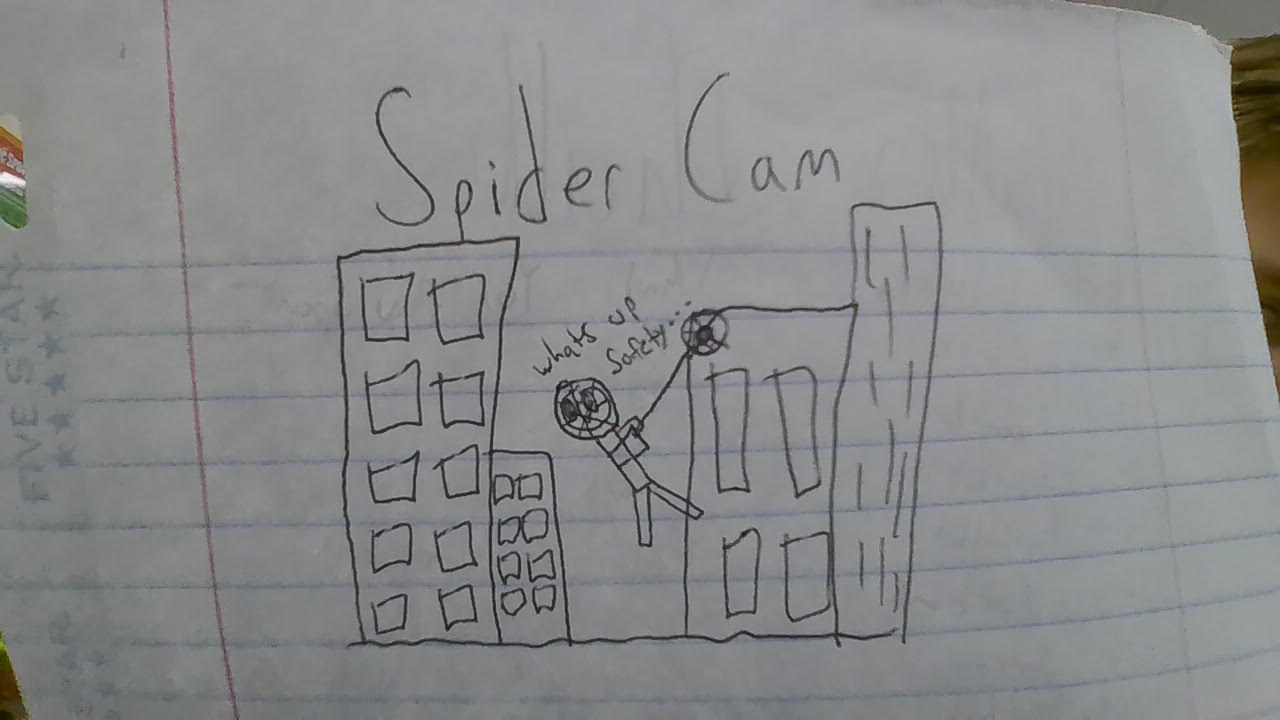 Spider Cam
whats up
Safety...
FIVE STAR